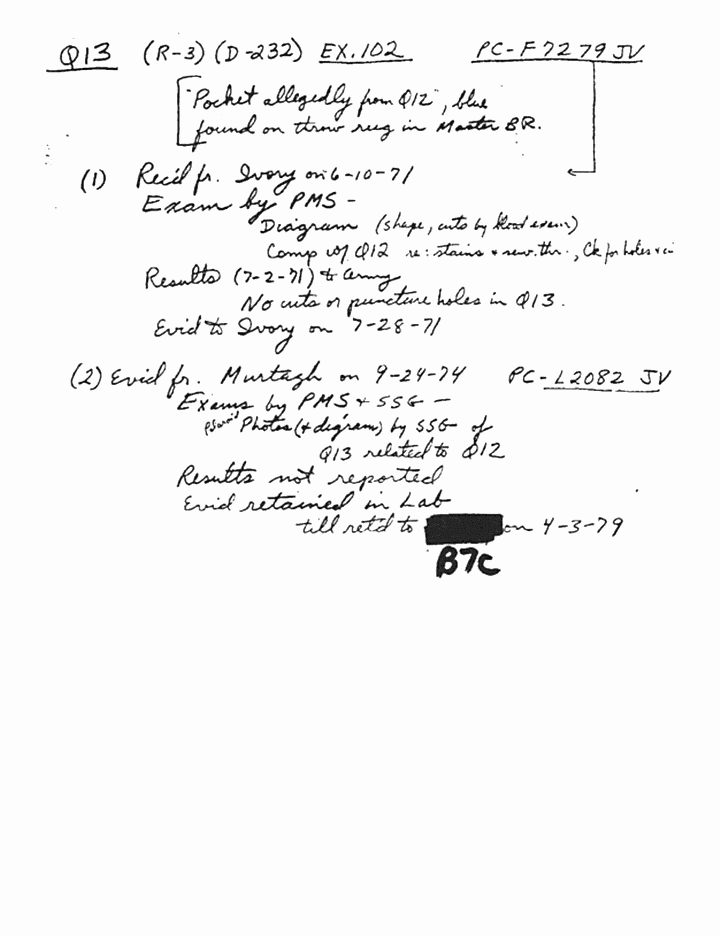 Q13 (R-3) (D-232) EX.102 PC-F7279 JV
"Pocket allegedly from Q12", blue
found on throw rug in Master BR.
(1) Rec'd fr. Ivory on 6-10-71
Exam by PMS -
Diagram (shape, cuts by blood exam)
Comp w/ Q12 re: stains + sew. thr., Ck for holes +
Results (7-2-71) to Army
No cuts or puncture holes in Q13.
Evid to Ivory on 7-28-71
(2) Evid fr. Murtagh on 9-24-74 PC-L2082 JV
Exams by PMS + SSG -
Photos (+ digram) by SSG of
Q13 related to Q12
Results not reported
Evid retained in Lab
till ret'd to on 4-3-79
B7C